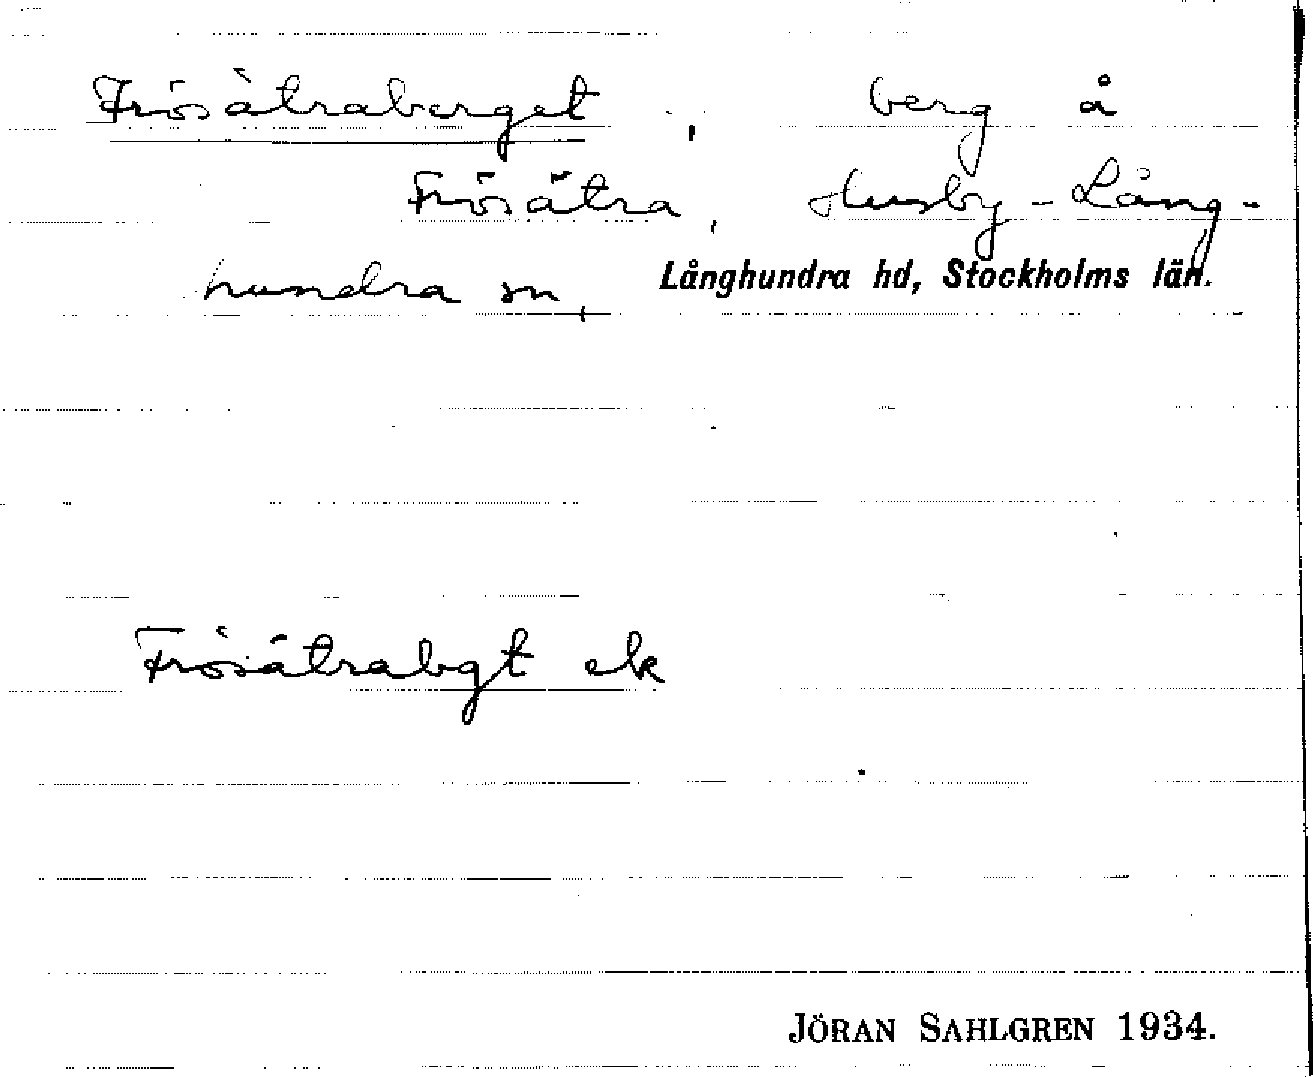 Frösätraberget, berg å
Frösätra, Husby-Lång-
hundra sn, Långhundra hd, Stockholms län.
Frösätrabgt ek
JÖRAN SAHLGREN 1934.